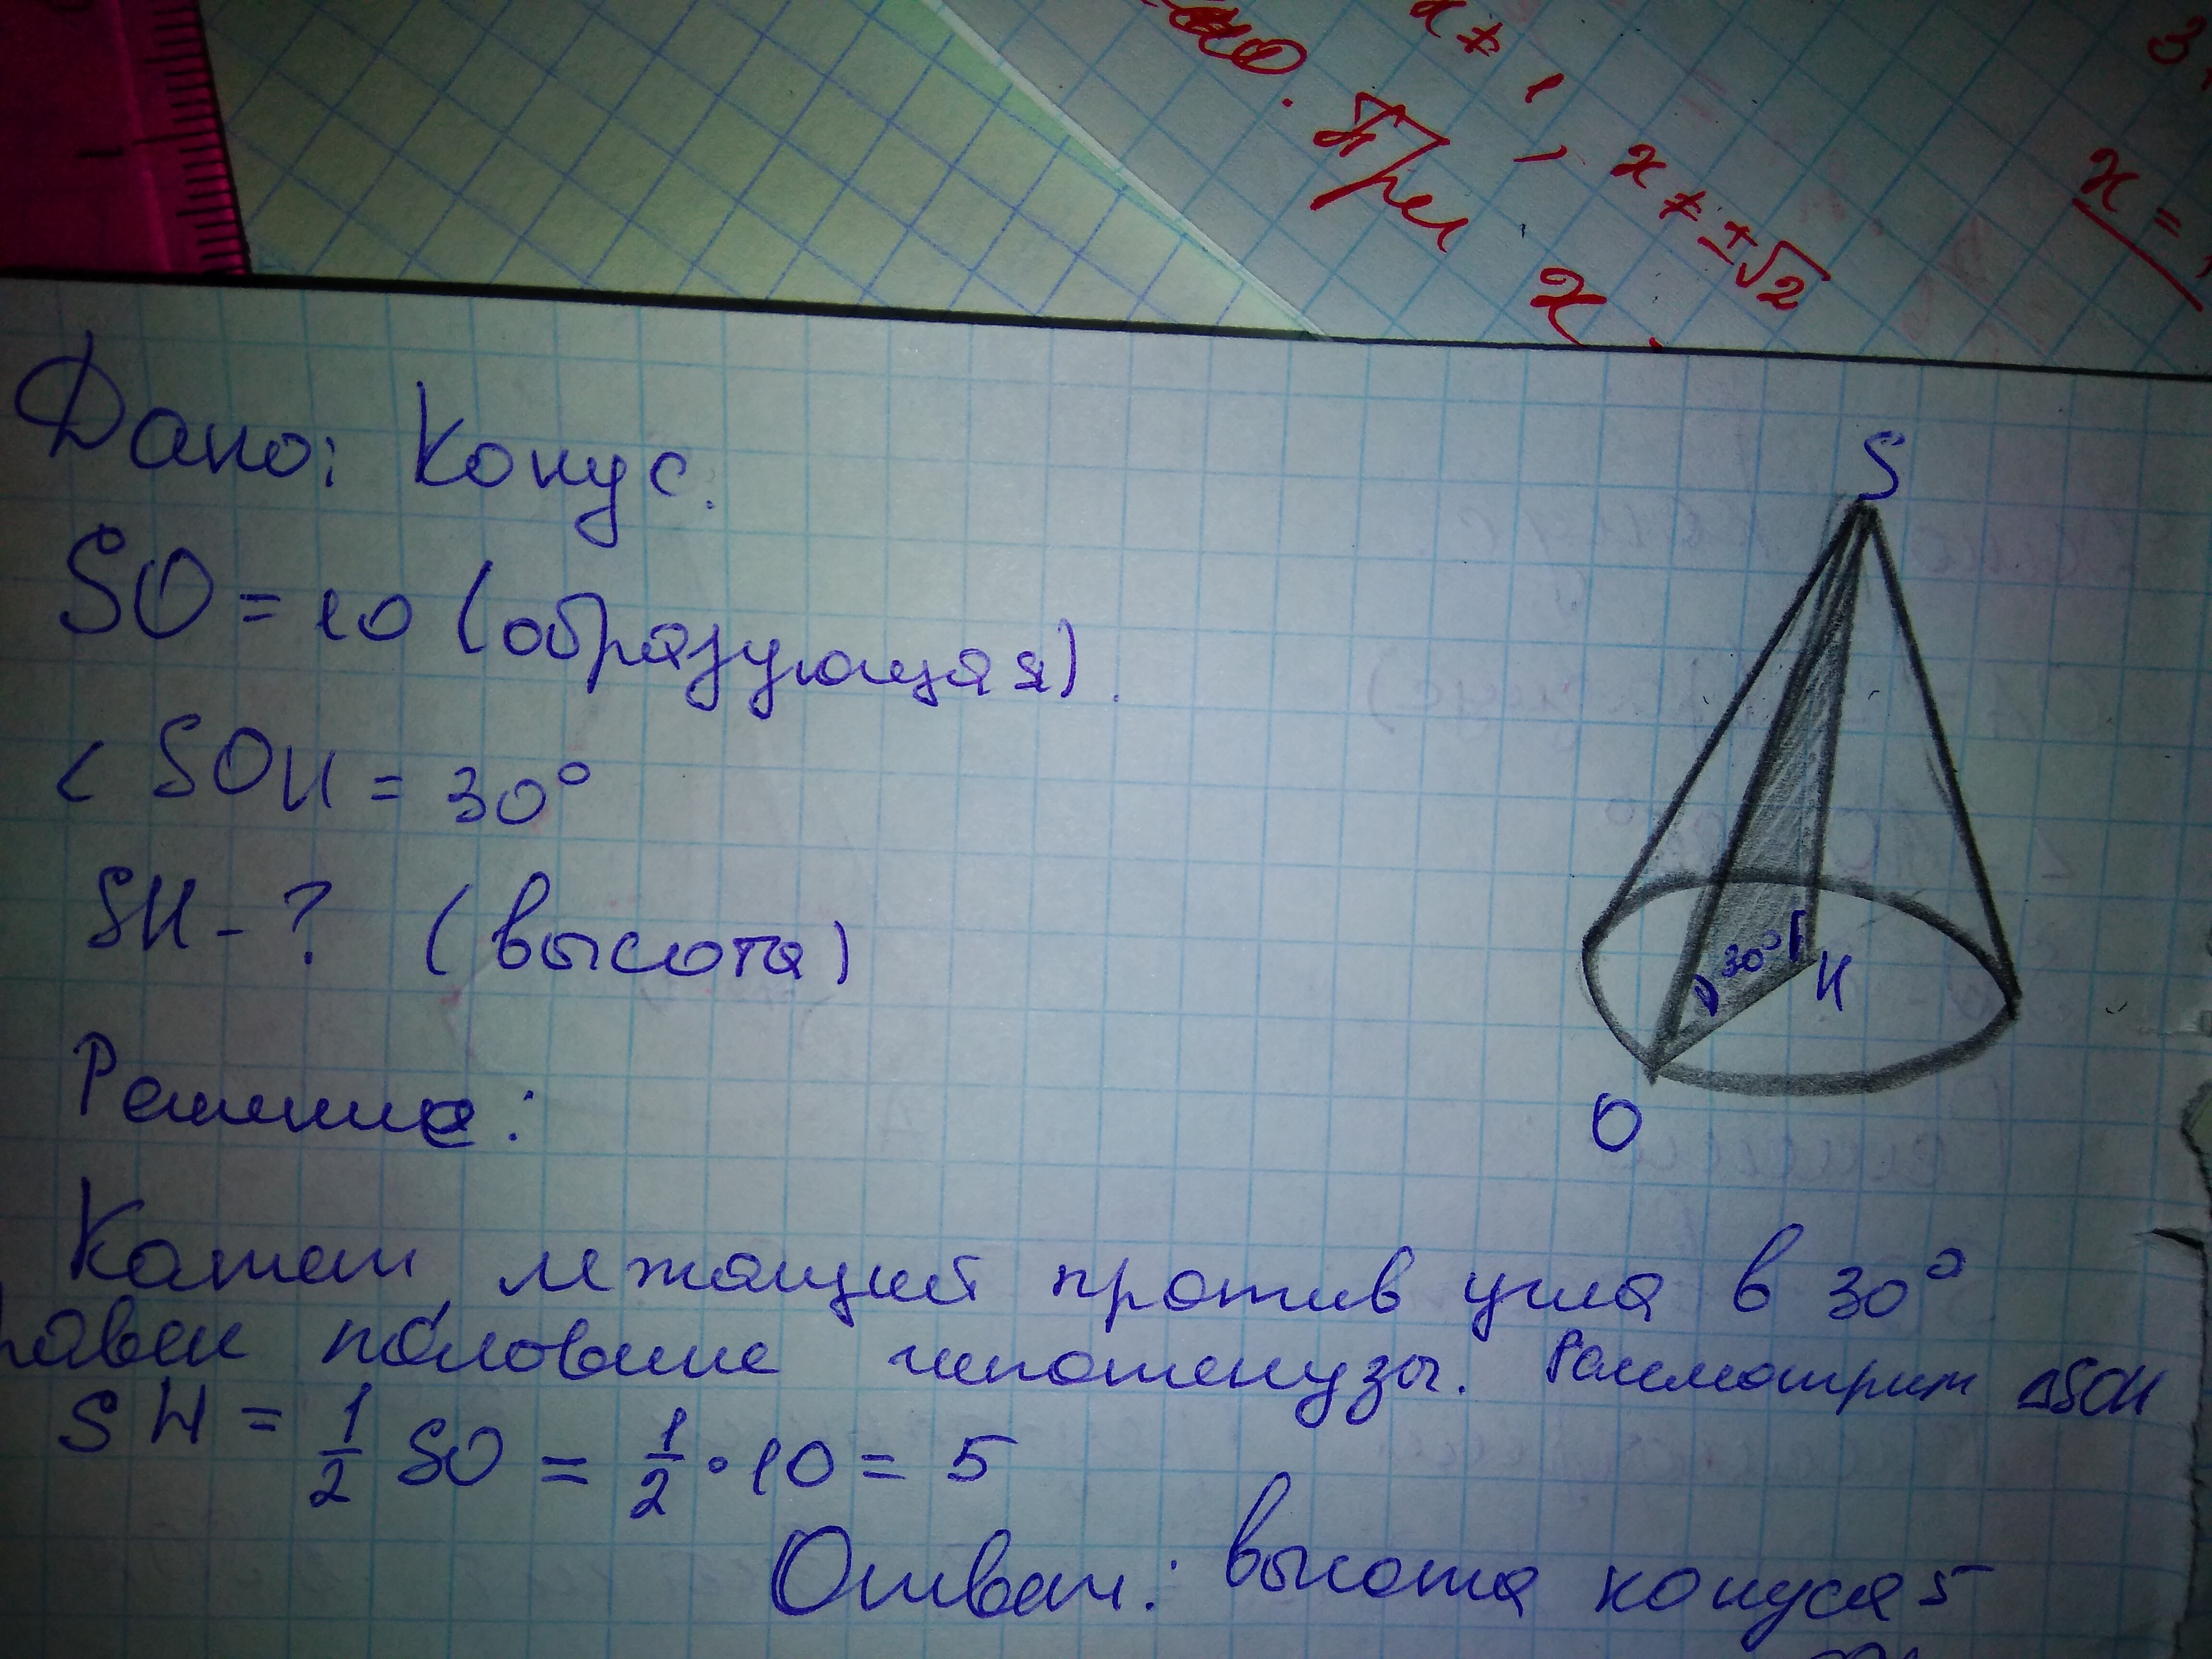 x ≠ 1, x ≠ ±√2
При x
x =
1
Дано: Конус.
SO = 10 (образующая).
< SOH = 30°
SH - ? (высота)
Решение:
Катет, лежащий против угла в 30°
равен половине гипотенузы. Рассмотрим ΔSOH
SH = 1/2 SO = 1/2 · 10 = 5
Ответ: высота конуса 5
S
30°
H
O